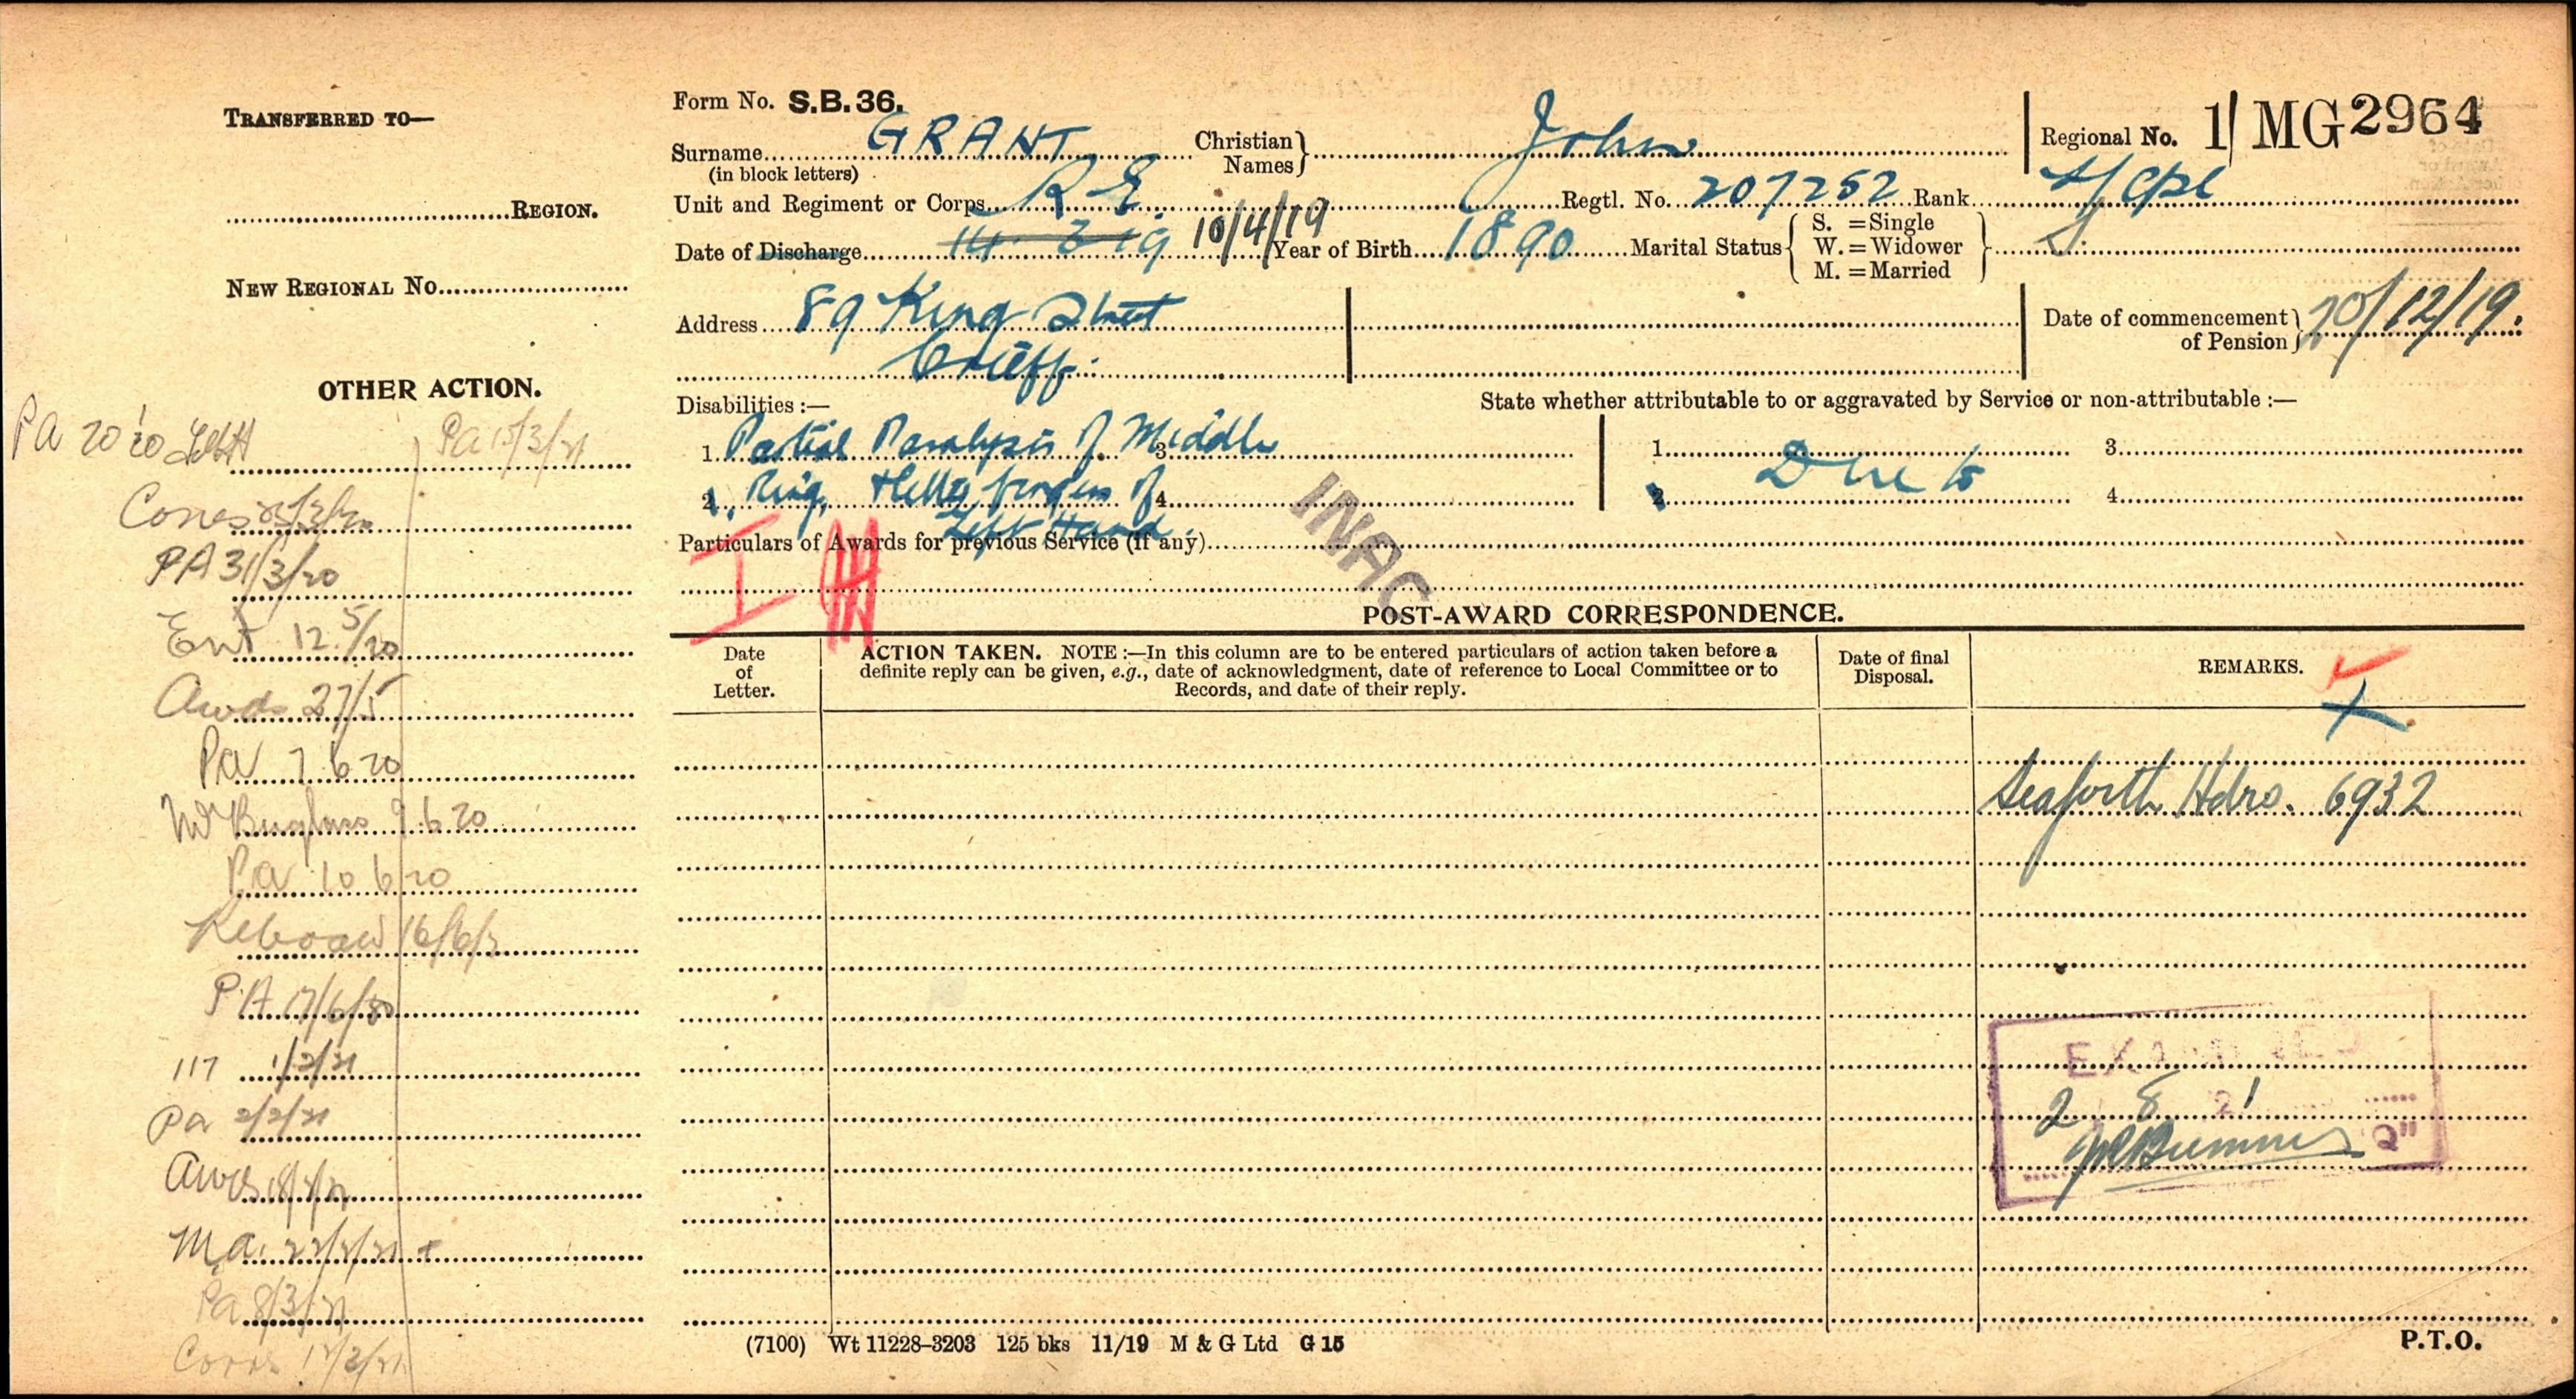 TRANSFERRED TO—
REGION.
NEW REGIONAL No.
OTHER ACTION.
PA 20 20
PA 15/3/21
PA 31/3/20
Ent 12/5/20
Awds 27/5
PA 7 6 20
9.6.20
PA 10 6 20
Reboard 16/6/
PA 17/6/20
117 1/2/21
PA 2/2/21
Awds
M.A. 22/2/21 +
PA 8/3/21
Form No. S.B. 36.
Surname GRANT Christian Names} John
(in block letters)
Regional No. 1/MG2964
Unit and Regiment or Corps R.E. Regtl. No. 207252 Rank A/Cpl
Date of Discharge 14 3 19 10/4/19 Year of Birth 1890 Marital Status { S. = Single
W. = Widower
M. = Married } S.
Address 89 King Street
Crieff.
Date of commencement of Pension } 20/12/19.
Disabilities :— State whether attributable to or aggravated by Service or non-attributable :—
1. Partial Paralysis of Middle 3. 1. Due to 3.
2. Ring, & Little fingers of 4. 2. 4.
Left Hand.
Particulars of Awards for previous Service (if any)
INAC
I
POST-AWARD CORRESPONDENCE.
Date of Letter.
ACTION TAKEN. NOTE :—In this column are to be entered particulars of action taken before a
definite reply can be given, e.g., date of acknowledgment, date of reference to Local Committee or to
Records, and date of their reply.
Date of final Disposal.
REMARKS.
Seaforth Hdrs. 6932
EXAMINED
2 8 21
Q"
(7100) Wt 11228–3203 125 bks 11/19 M & G Ltd G 15
P.T.O.